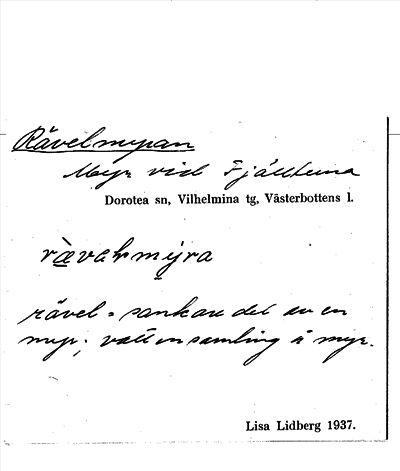 Rävelmyran
Myr vid Fjälltuna
Dorotea sn, Vilhelmina tg, Västerbottens l.
rävel = sankare del av en
myr; vattensamling å myr.
Lisa Lidberg 1937.